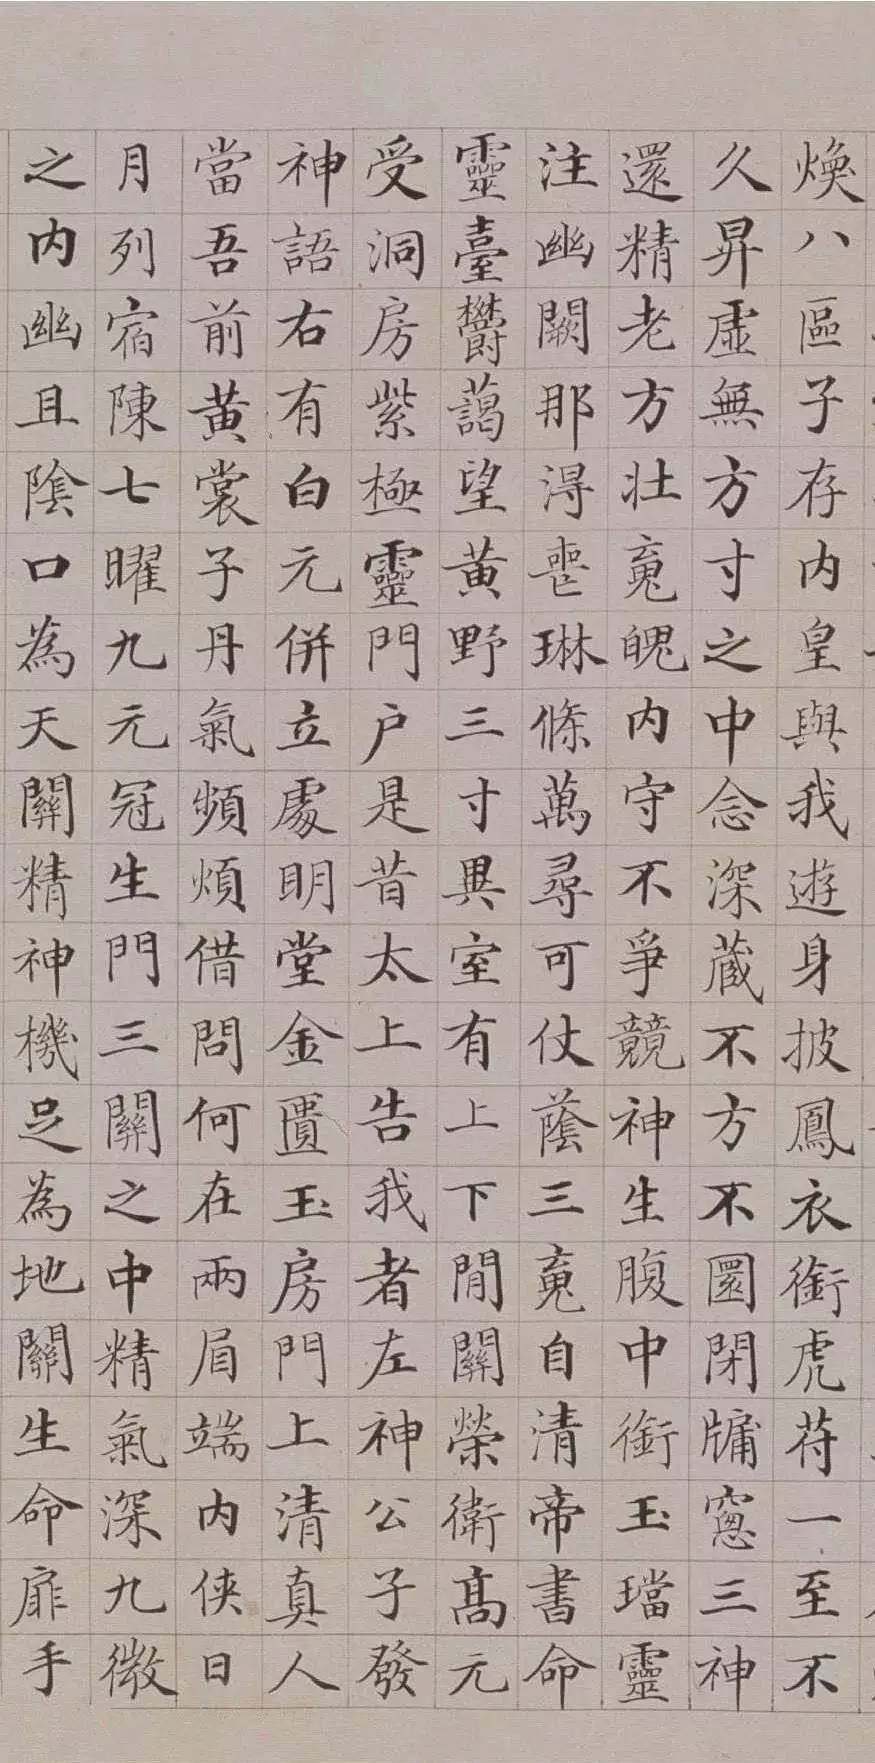 煥八區子存内皇與我遊身披鳳衣銜虎苻一至不
久昇虛無方寸之中念深藏不方不圎閉牖窓三神
還精老方壯䰟魄内守不爭競神生腹中銜玉璫靈
注幽闕那淂喪琳條萬尋可仗蔭三䰟自清帝書命
靈臺欝藹望黄野三寸異室有上下閒關榮衛髙元
受洞房紫極靈門户是昔太上告我者左神公子發
神語右有白元併立處明堂金匱玉房門上清真人
當吾前黄裳子丹氣頻煩借問何在兩眉端内侠日
月列宿陳七曜九元冠生門三關之中精氣深九微
之内幽且陰口為天關精神機足為地關生命扉手